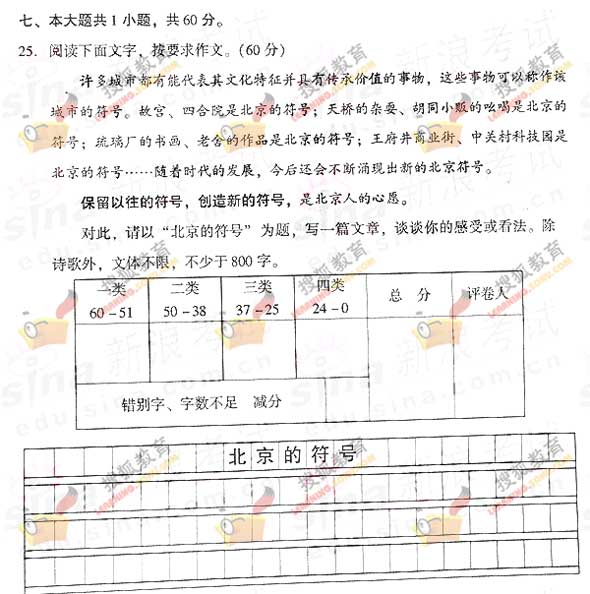 七、本大题共1小题，共60分。
25. 阅读下面文字，按要求作文。(60分)
许多城市都有能代表其文化特征并具有传承价值的事物，这些事物可以称作该
城市的符号。故宫、四合院是北京的符号；天桥的杂耍、胡同小贩的吆喝是北京的
符号；琉璃厂的书画、老舍的作品是北京的符号；王府井商业街、中关村科技园是
北京的符号……随着时代的发展，今后还会不断涌现出新的北京符号。
保留以往的符号，创造新的符号，是北京人的心愿。
对此，请以“北京的符号”为题，写一篇文章，谈谈你的感受或看法。除
诗歌外，文体不限，不少于800字。
一类 二类 三类 四类 总 分 评卷人
60－51 50－38 37－25 24－0
错别字、字数不足 减分
北京的符号
搜狐教育
LEARNING.SOHU.COM
sina 新浪考试
edu.sina.com.cn